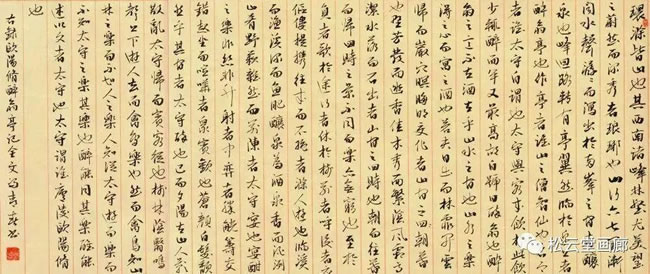 環滁皆山也其西南諸峰林壑尤美望
之蔚然而深秀者琅琊也山行六七里漸
聞水聲潺潺而瀉出於兩峰之間者釀
泉也峰回路轉有亭翼然臨於泉上者
醉翁亭也作亭者誰山之僧智仙也名之
者誰太守自謂也太守與客來飲於此飲
少輒醉而年又最高故自號曰醉翁也醉翁
之意不在酒在乎山水之間也山水之樂
得之心而寓之酒也若夫日出而林霏開雲
歸而巖穴暝晦明變化者山間之朝暮
也野芳發而幽香佳木秀而繁陰風霜高
潔水落而石出者山間之四時也朝而往暮
而歸四時之景不同而樂亦無窮也至於
負者歌於途行者休於樹前者呼後者應
傴僂提攜往來而不絕者滁人遊也臨溪
而漁溪深而魚肥釀泉為酒泉香而酒洌
山肴野蔌雜然而前陳者太守宴也宴酣
之樂非絲非竹射者中弈者勝觥籌交
錯起坐而喧嘩者眾賓歡也蒼顏白髮頹
然乎其間者太守醉也已而夕陽在山人影
散亂太守歸而賓客從也樹林陰翳鳴
聲上下遊人去而禽鳥樂也然而禽鳥知山
林之樂而不知人之樂人知從太守遊而樂而
不知太守之樂其樂也醉能同其樂醒能
述以文者太守也太守謂誰廬陵歐陽脩也
右錄歐陽脩醉翁亭記全文
松云堂画廊